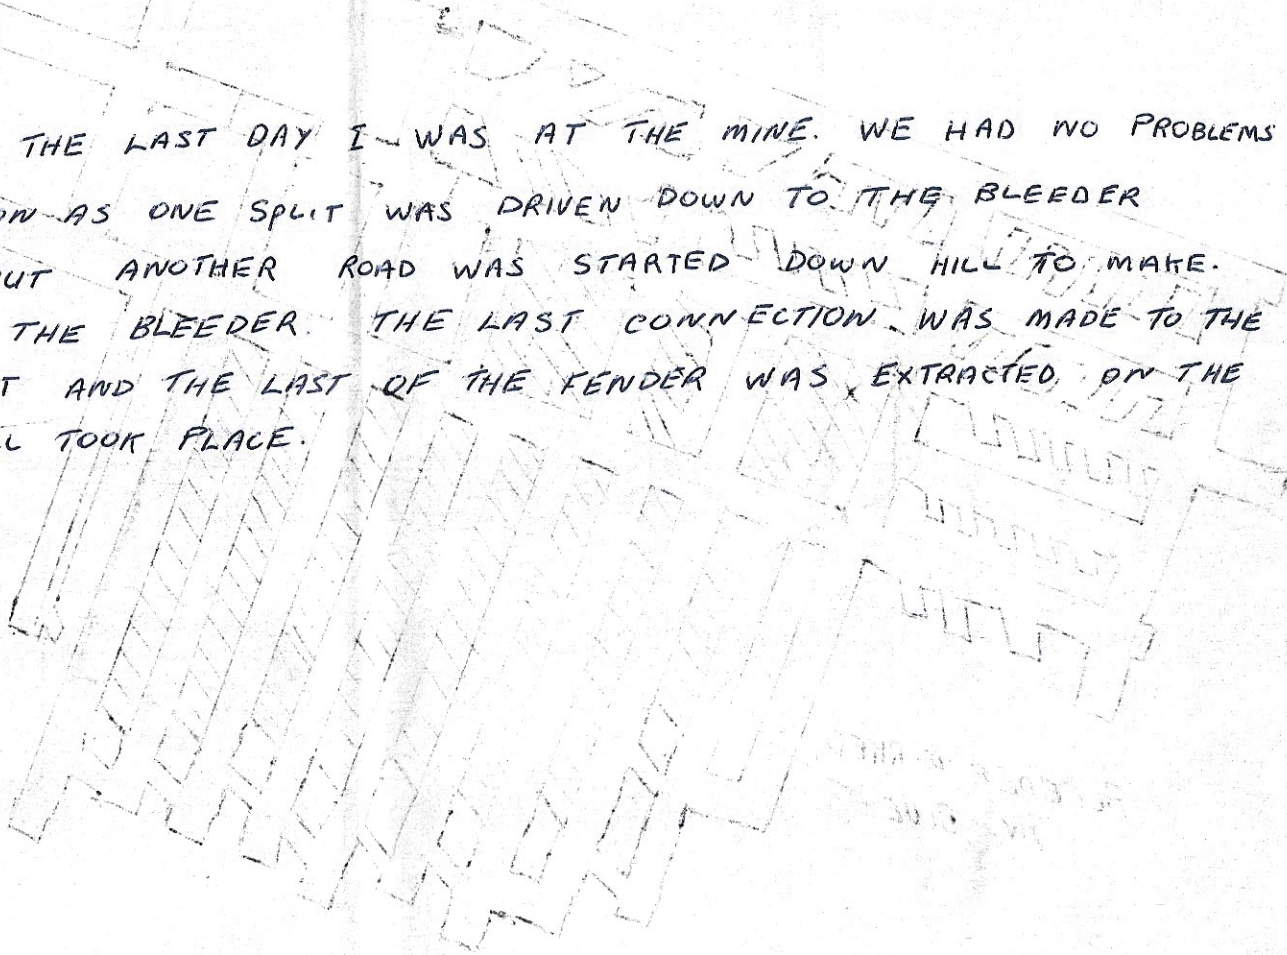 THE LAST DAY I WAS AT THE MINE. WE HAD NO PROBLEMS
ON AS ONE SPLIT WAS DRIVEN DOWN TO THE BLEEDER
UT ANOTHER ROAD WAS STARTED DOWN HILL TO MAKE.
THE BLEEDER. THE LAST CONNECTION WAS MADE TO THE
T AND THE LAST OF THE FENDER WAS EXTRACTED ON THE
L TOOK PLACE.